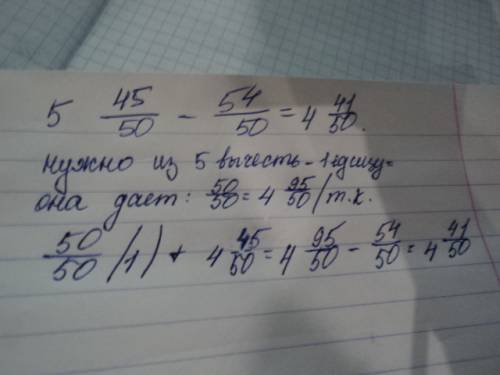 5 45/50 - 54/50 = 4 41/50.
нужно из 5 вычесть - 1 едицу =
она дает: 50/50 = 4 95/50 / т.к.
50/50 /1) + 4 45/50 = 4 95/50 - 54/50 = 4 41/50